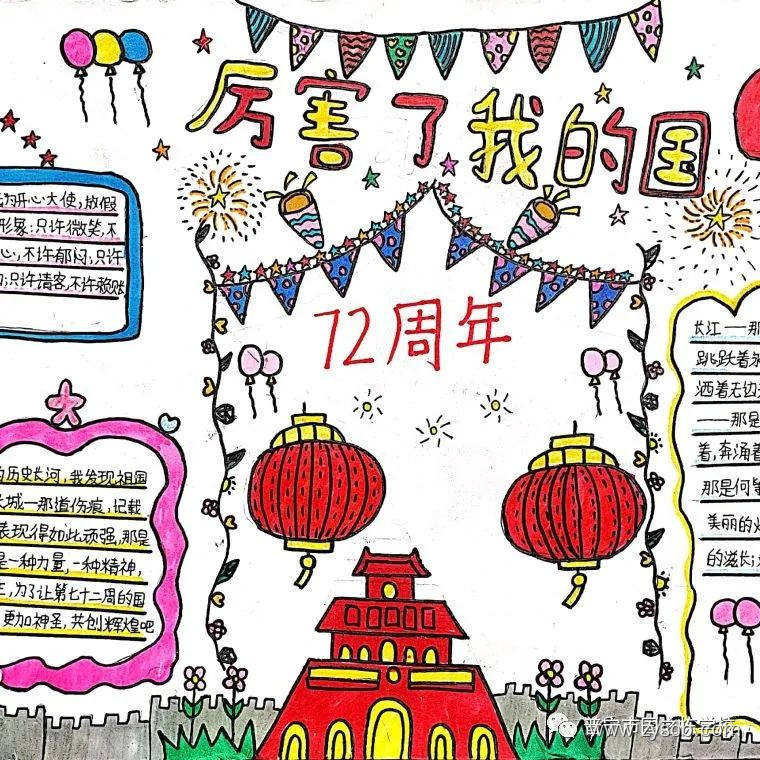 厉害了我的国
72周年
为开心大使,放假
形象;只许微笑,不
心,不许郁闷;只许
;只许请客,不许赖账
大
的历史长河,我发现祖国
长城一那道伤痕,记载
表现得如此顽强,那是
是一种力量,一种精神,
,为了让第七十二周的国
更加神圣,共创辉煌吧
长江——那
跳跃着
洒着无边
——那是
着,奔涌着
那是何等
美丽的
的滋长;